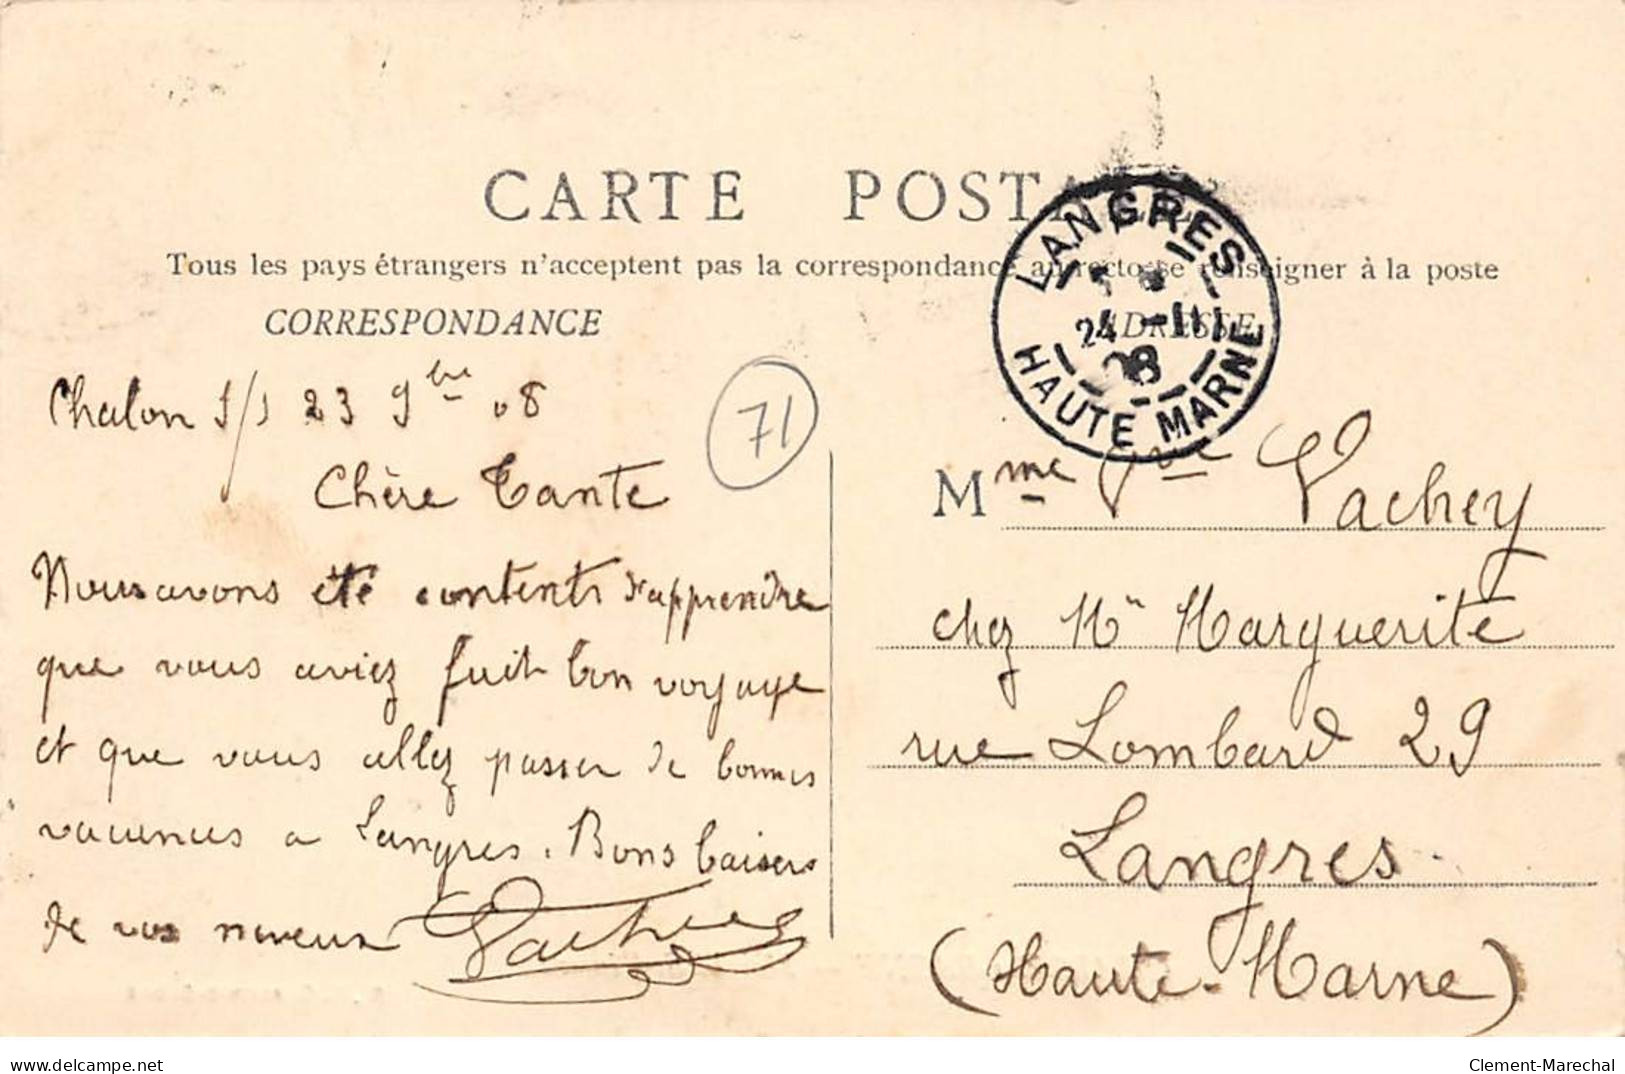 CARTE POSTALE
Tous les pays étrangers n'acceptent pas la correspondance au recto se renseigner à la poste
CORRESPONDANCE
ADRESSE
LANGRES
24 -11
08
HAUTE MARNE
71
Chalon s/s 23 9bre 08
Chère Tante
Nous avons été contents d'apprendre
que vous aviez fait bon voyage
et que vous allez passer de bonnes
vacances a Langres. Bons baisers
de vos neveux
Mme Vve Vachey
chez Mme Marguerite
rue Lombard 29
Langres.
(Haute-Marne)
delcampe.net
Clement-Marechal